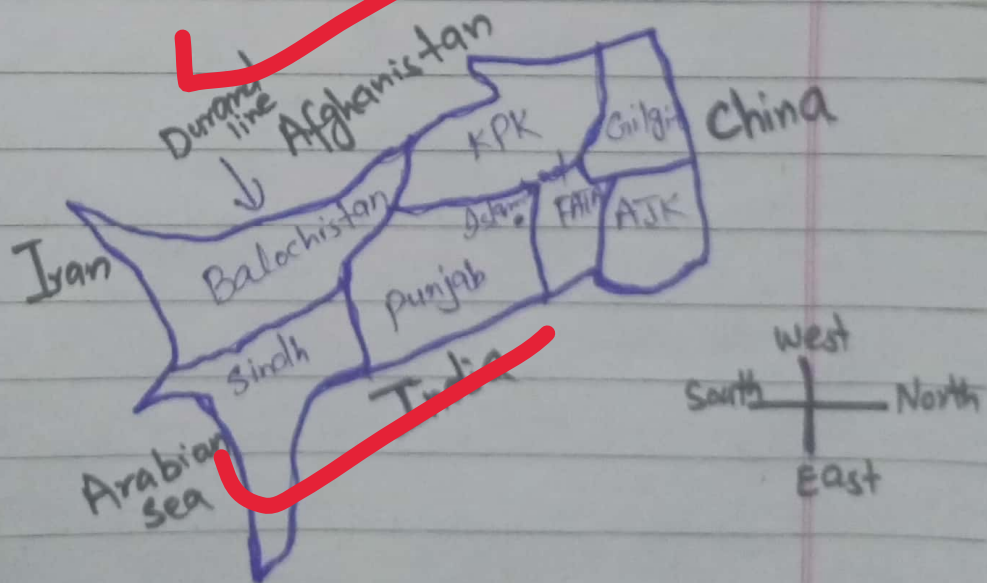 Durand
line
Afghanistan
KPK
Gilgit
China
Iran
Balochistan
FATA
AJK
Punjab
Sindh
India
Arabian
sea
West
South
North
East